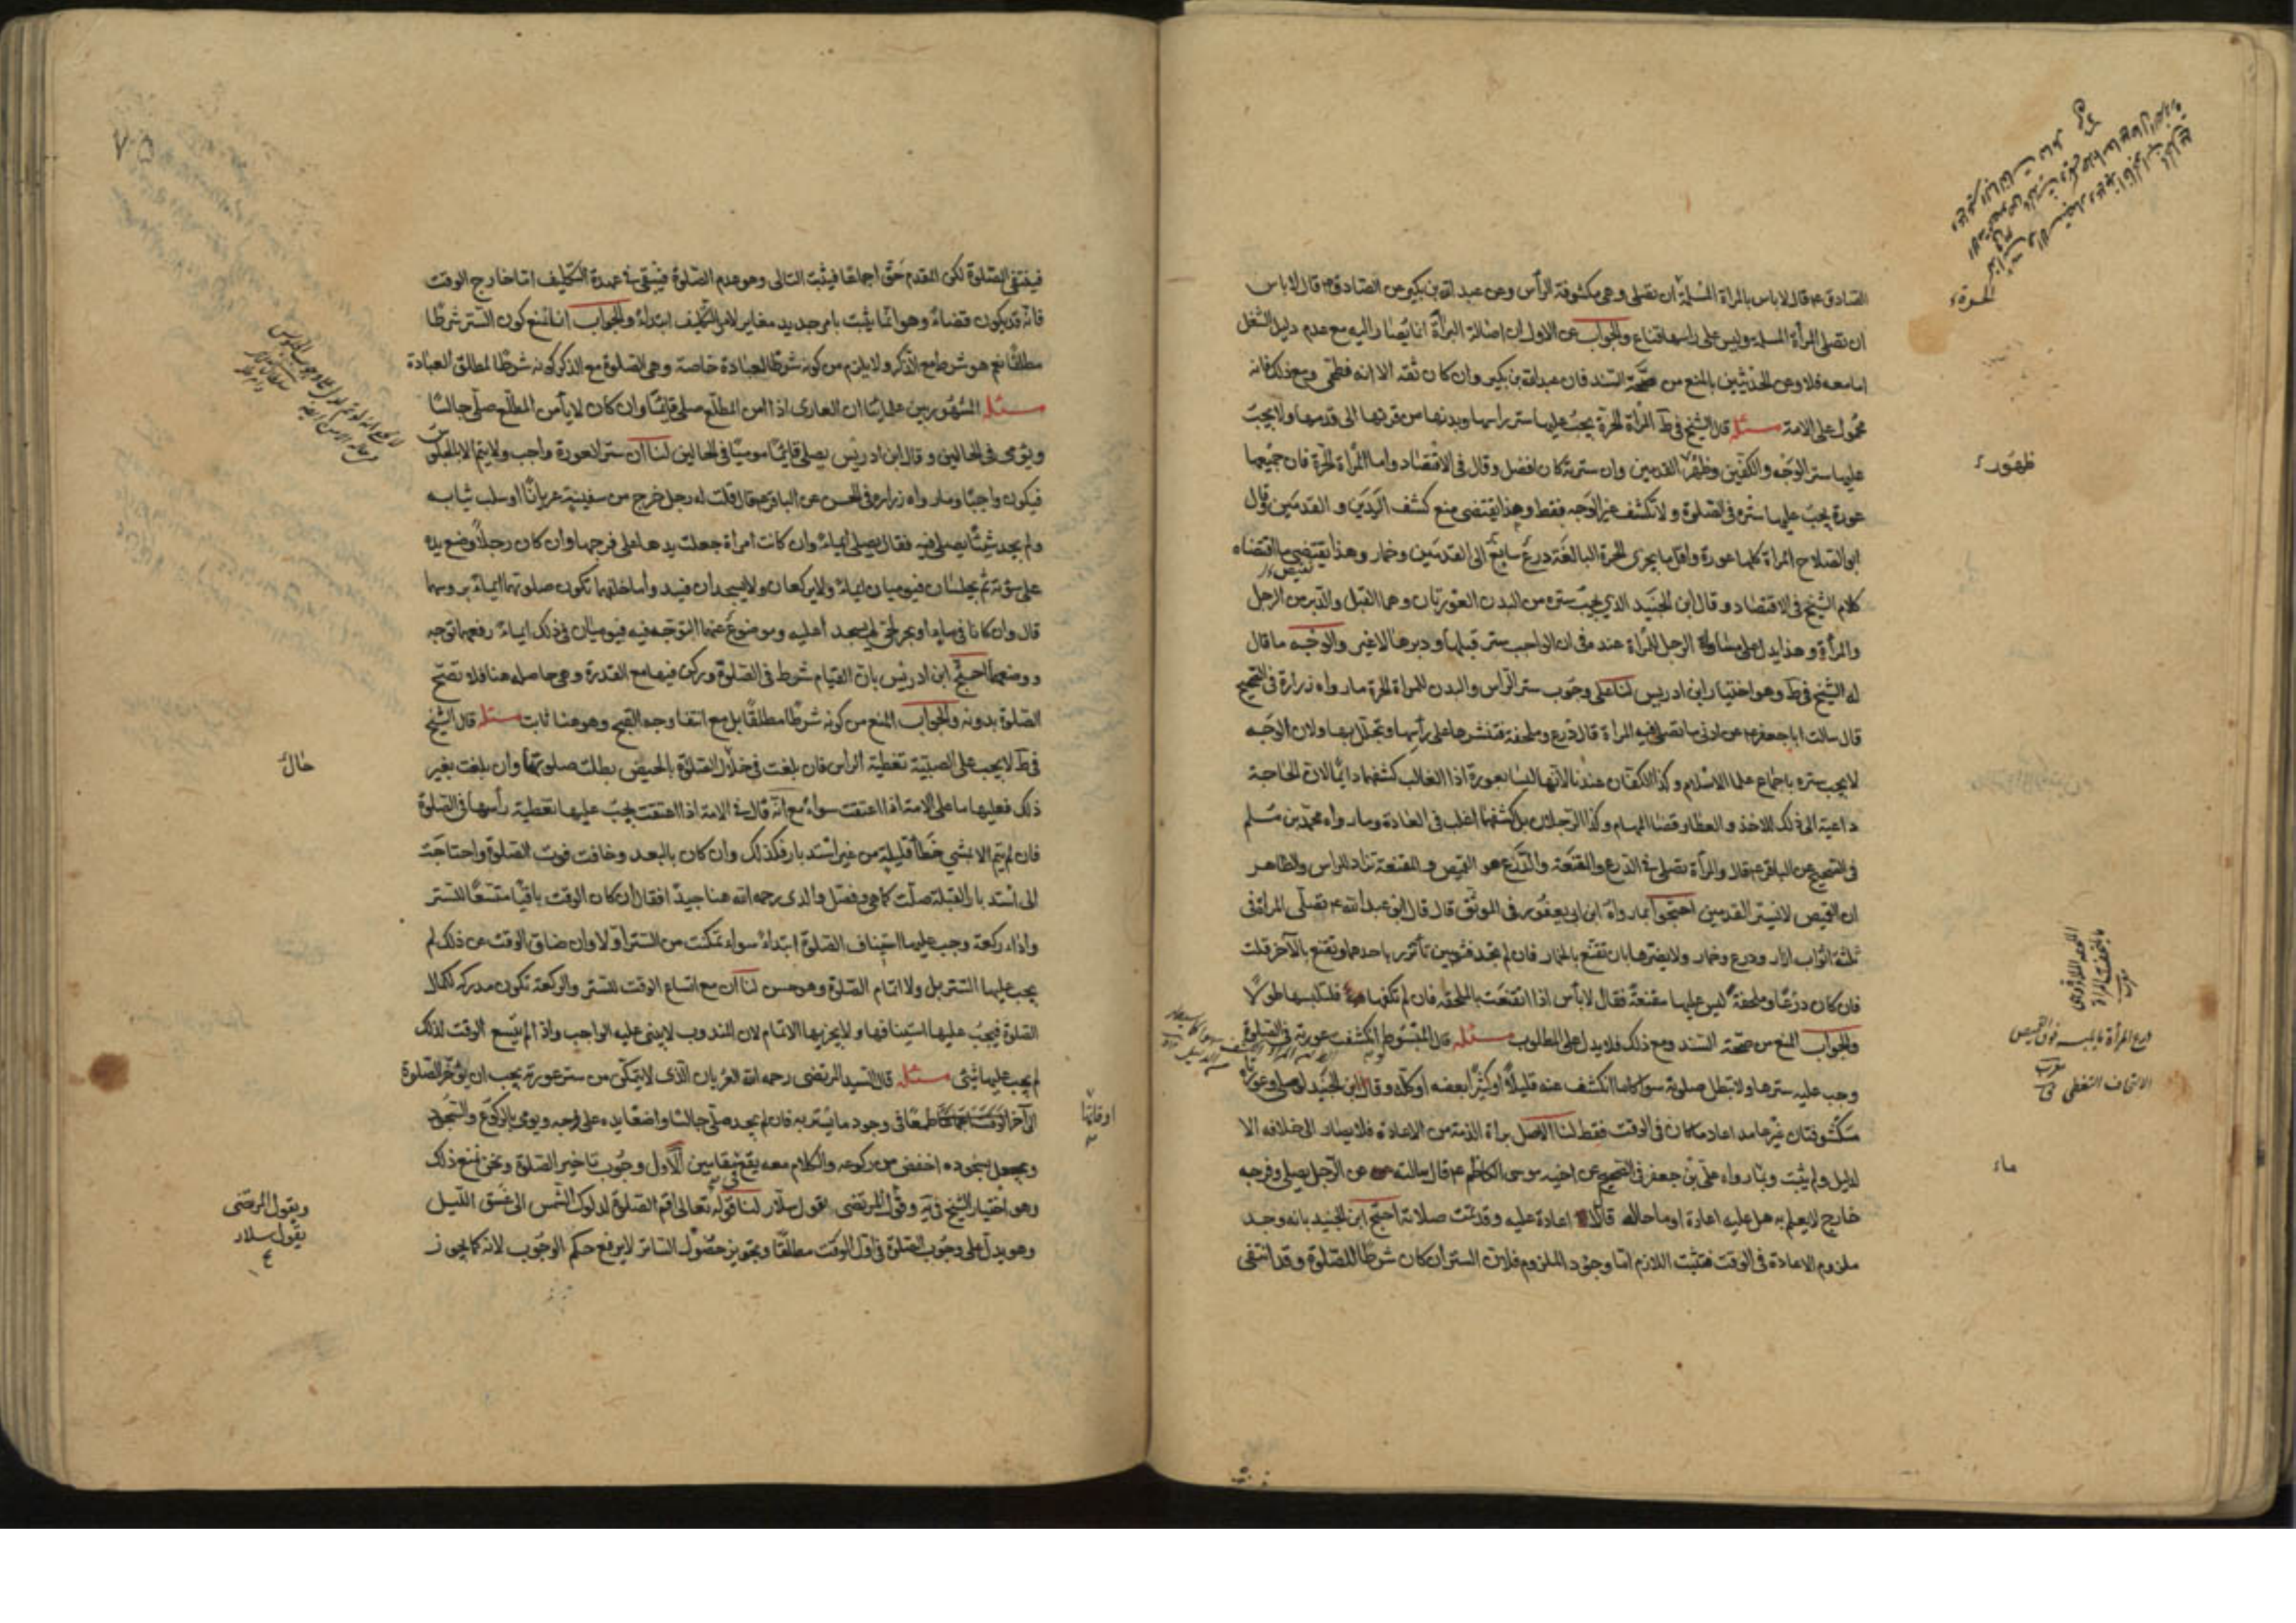 الصادق ع قال لا باس بالمراة المسلمة ان تصلى وهى مكشوفة الرأس وعن عبد الله بن بكير عن الصادق ع قال لا باس
ان تصلى المرأة المسلمة وليس على راسها قناع والجواب عن الاول ان اصالة البراة انما يصار اليها مع عدم دليل الشغل
اما معه فلا وعن الحديثين بالمنع من صحة السند فان عبد الله بن بكير وان كان ثقه الا انه فطحى ومع ذلك فانه
محمول على الامة مسئلة قال الشيخ فى ط المرأة الحرة يجب عليها ستر راسها وبدنها من قرنها الى قدمها ولا يجب
عليها ستر الوجه والكفين وظهور القدمين وان سترته كان افضل وقال فى الاقتصاد واما المرأة الحرة فان جميعها
عورة يجب عليها ستره فى الصلوة ولا تكشف غير الوجه فقط وهذا يقتضى منع كشف اليدين والقدمين وقال
ابو الصلاح المراة كلها عورة واقل ما يجزى الحرة البالغة درع سابغ الى القدمين وخمار وهذا يقتضى ما اقتضاه
كلام الشيخ فى الاقتصاد وقال ابن الجنيد الذي يجب ستره من البدن العورتان وهما القبل والدبر من الرجل
والمرأة وهذا يدل على مساواة الرجل للمرأة عنده فى ان الواجب ستر قبلها ودبرها لا غير والوجه ما قال
له الشيخ فى ط وهو اختيار ابن ادريس لنا على وجوب ستر الراس والبدن للمراة الحرة ما رواه زرارة فى الصحيح
قال سالت ابا جعفر ع عن ادنى ما تصلى فيه المراة قال درع وملحفة فتنشرها على رأسها وتجلل بها ولان الوجه
لا يجب ستره باجماع علماء الاسلام وكذا الكفان عندنا لانها ليسا بعورة اذا الغالب كشفهما دائما لان الحاجة
داعية الى ذلك للاخذ والعطاء وقضاء المهام وكذا الرجلان بل كشفهما اغلب فى العادة وما رواه محمد بن مسلم
فى الصحيح عن الباقر ع قال والمرأة تصلى فى الدرع والمقنعة والدرع هو القميص والمقنعة تزاد للراس والظاهر
ان القميص لا يستر القدمين احتجوا بما رواه ابن ابى يعفور فى الموثق قال قال ابو عبد الله ع تصلى المراة فى
ثلثة اثواب ازار ودرع وخمار ولا يضرها بان تقنع بالخمار فان لم تجد فثوبين تأتزر باحدهما وتقنع بالآخر قلت
فان كان درعا وملحفة ليس عليها مقنعة فقال لا بأس اذا تقنعت بالملحفة فان لم تكفها فلتلبسها طولا
والجواب المنع من صحة السند ومع ذلك فلا يدل على المطلوب مسئلة قال فى المبسوط لو انكشف عورتيه فى الصلوة
وجب عليه سترهما ولا تبطل صلوته سواء كان ما انكشف عنه قليلا او كثيرا بعضه او كله وقال ابن الجنيد لو صلى وعورتاه
مكشوفتان غير عامد اعاد ما كان فى الوقت فقط لنا الاصل براة الذمة من الاعادة فلا يصار الى خلافه الا
لدليل ولم يثبت وما رواه على بن جعفر فى الصحيح عن اخيه موسى الكاظم ع قال سالته عن الرجل يصلى وفرجه
خارج لا يعلم به هل عليه اعادة او ما حاله قال لا اعادة عليه وقد تمت صلاته احتج ابن الجنيد بانه وجد
ملزوم الاعادة فى الوقت فيثبت اللازم اما وجود الملزوم فلان الستر ان كان شرطا للصلوة وقد انتفى
الحرة
ظهور
درع المرأة ما يلبسه فوق القميص
مغرب
الالتحاف التغطى
ماء
فينتفى الصلوة لكن المقدم حق اجماعا فيثبت التالى وهو عدم الصلوة فيبقى فى عهدة التكليف اما خارج الوقت
فانه قد يكون قضاء وهو انما يثبت بامر جديد مغاير لامر التكليف ابتداء والجواب انا نمنع كون الستر شرطا
مطلقا نعم هو شرط مع الذكر ولا يلزم من كونه شرطا لعبادة خاصة وهى الصلوة مع الذكر كونه شرطا لمطلق العبادة
مسئلة المشهور بين علمائنا ان العارى اذا امن المطلع صلى قائما وان كان لا يأمن المطلع صلى جالسا
ويؤمى فى الحالين وقال ابن ادريس يصلى قائما موميا فى الحالين لنا ان ستر العورة واجب ولا يتم الا بالجلوس
فيكون واجبا وما رواه زراره فى الحسن عن الباقر ع قال قلت له رجل خرج من سفينة عريانا او سلب ثيابه
ولم يجد شيئا يصلى فيه فقال يصلى ايماء وان كانت امراة جعلت يدها على فرجها وان كان رجلا وضع يده
على سؤته ثم يجلسان فيوميان ايماء ولا يركعان ولا يسجدان فيبدو ما خلفهما تكون صلوتهما ايماء بروسهما
قال وان كانا فى ماء او بحر لجى لم يسجدا عليه وموضوع عنهما التوجه فيه فيوميان فى ذلك ايماء رفعهما توجه
ووضعهما احتج ابن ادريس بان القيام شرط فى الصلوة وركن فيها مع القدرة وهى حاصله هنا فلا تصح
الصلوة بدونه والجواب المنع من كونه شرطا مطلقا بل مع انتفاء وجه القبح وهو هنا ثابت مسئلة قال الشيخ
فى ط لا يجب على الصبية تغطية الراس فان بلغت فى خلال الصلوة بالحيض بطلت صلوتها وان بلغت بغير
ذلك فعليها ما على الامة اذا اعتقت سواء مع انه قال فى الامة اذا اعتقت يجب عليها تغطية رأسها فى الصلوة
فان لم يتم الا بمشي خطأ قليلة من غير استدبار فكذلك وان كان بالبعد وخافت فوت الصلوة واحتاجت
الى استدبار القبلة صلت كما هى وفصل والدى رحمه الله هنا جيدا فقال ان كان الوقت باقيا متسعا للستر
واداء ركعة وجب عليها استيناف الصلوة ابتداء سواء تمكنت من الستر او لا وان ضاق الوقت عن ذلك لم
يجب عليها الستر بل ولا اتمام الصلوة وهو حسن لنا ان مع اتساع الوقت للستر والركعة تكون مدركه لكمال
الصلوة فيجب عليها استينافها ولا يجزيها الاتمام لان المندوب لا يبنى عليه الواجب واذا لم يتسع الوقت لذلك
لم يجب عليها شئ مسئلة قال السيد المرتضى رحمه الله العريان الذى لا يتمكن من ستر عورته يجب ان يؤخر الصلوة
الى آخر طمعا فى وجود ما يستر به فان لم يجد صلى جالسا واضعا يده على فرجه ويومى بالركوع والسجود
ويجعل سجوده اخفض من ركوعه والكلام معه يقع فى مقامين الاول وجوب تاخير الصلوة ونحن نمنع ذلك
وهو اختيار الشيخ فى يه وقول المرتضى يقول سلار لنا قوله تعالى اقم الصلوة لدلوك الشمس الى غسق الليل
وهو يدل على وجوب الصلوة فى اول الوقت مطلقا وتجويز حصول الساتر لا يرفع حكم الوجوب لانه كما يجوز
حال
اوقاتها
ويقول المرتضى
يقول سلار